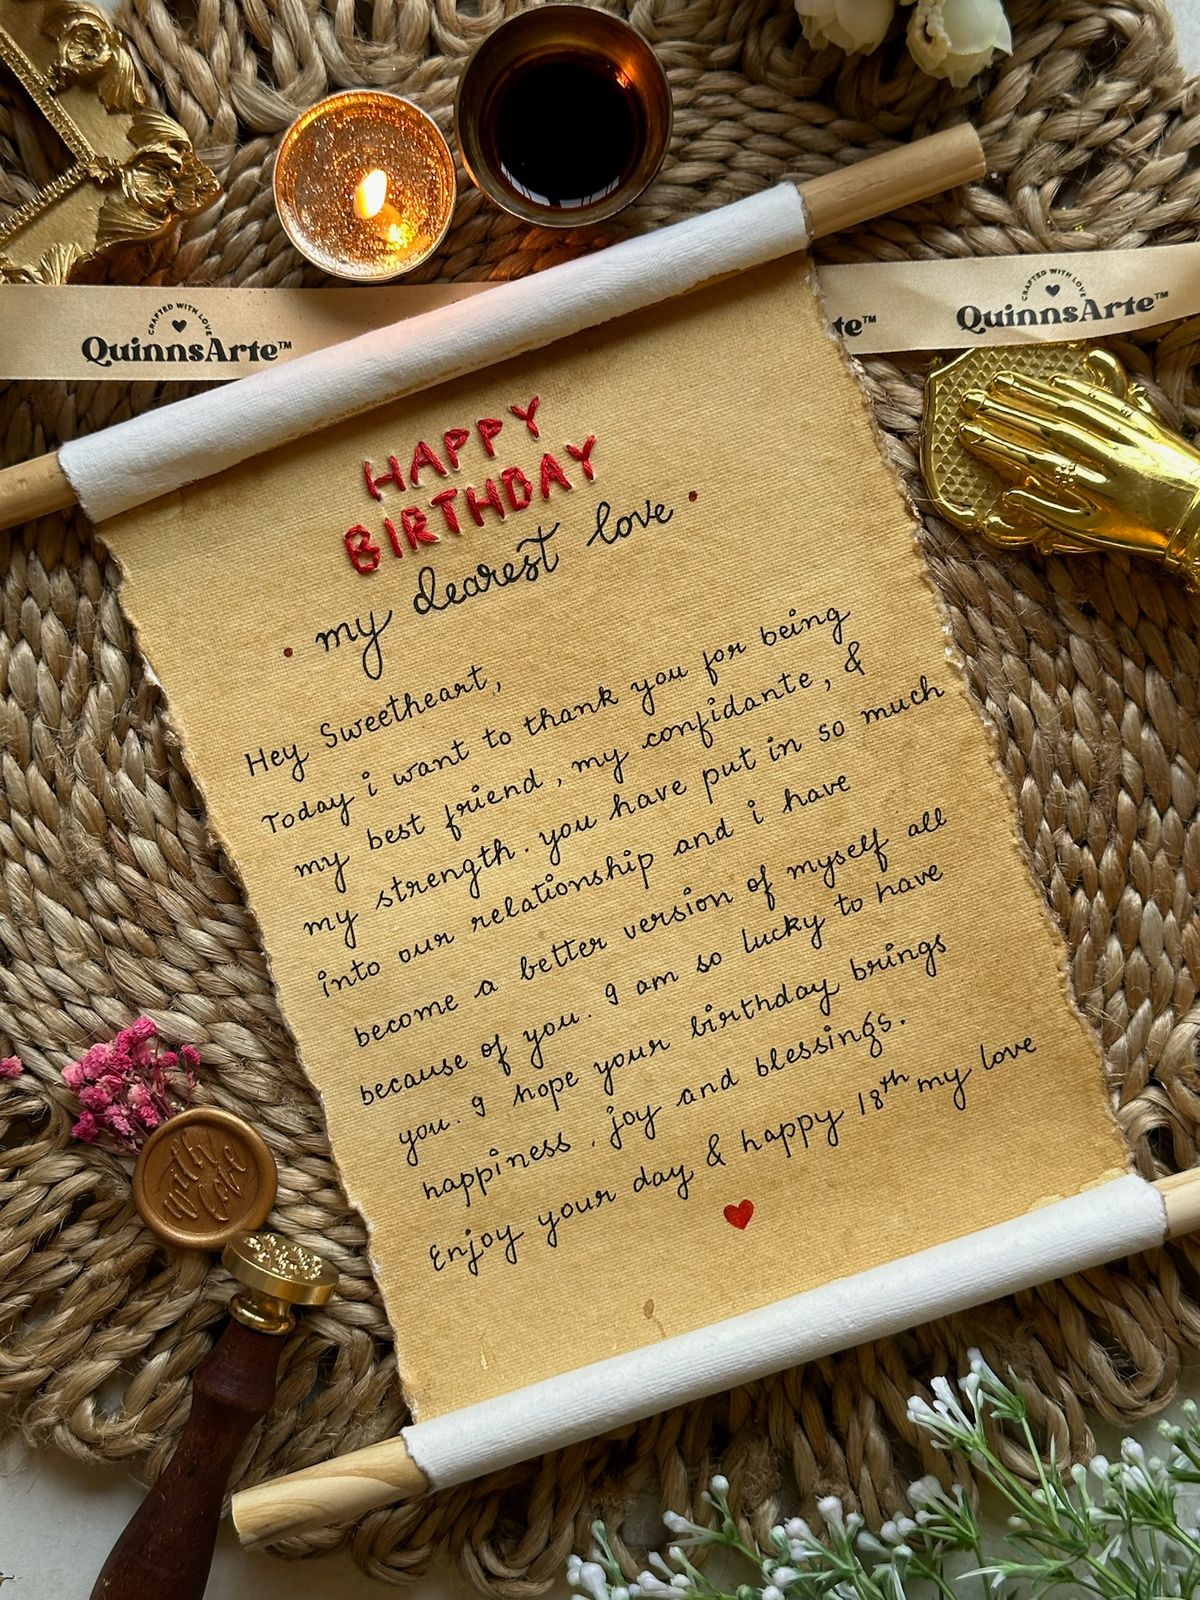 CRAFTED WITH LOVE
QuinnsArte™
te™
CRAFTED WITH LOVE
QuinnsArte™
HAPPY
BIRTHDAY
my dearest love
Hey Sweetheart,
Today i want to thank you for being
my best friend, my confidante, &
my strength. you have put in so much
into our relationship and i have
become a better version of myself all
because of you. I am so lucky to have
you. I hope your birthday brings
happiness, joy and blessings.
Enjoy your day & happy 18th my love
with
love